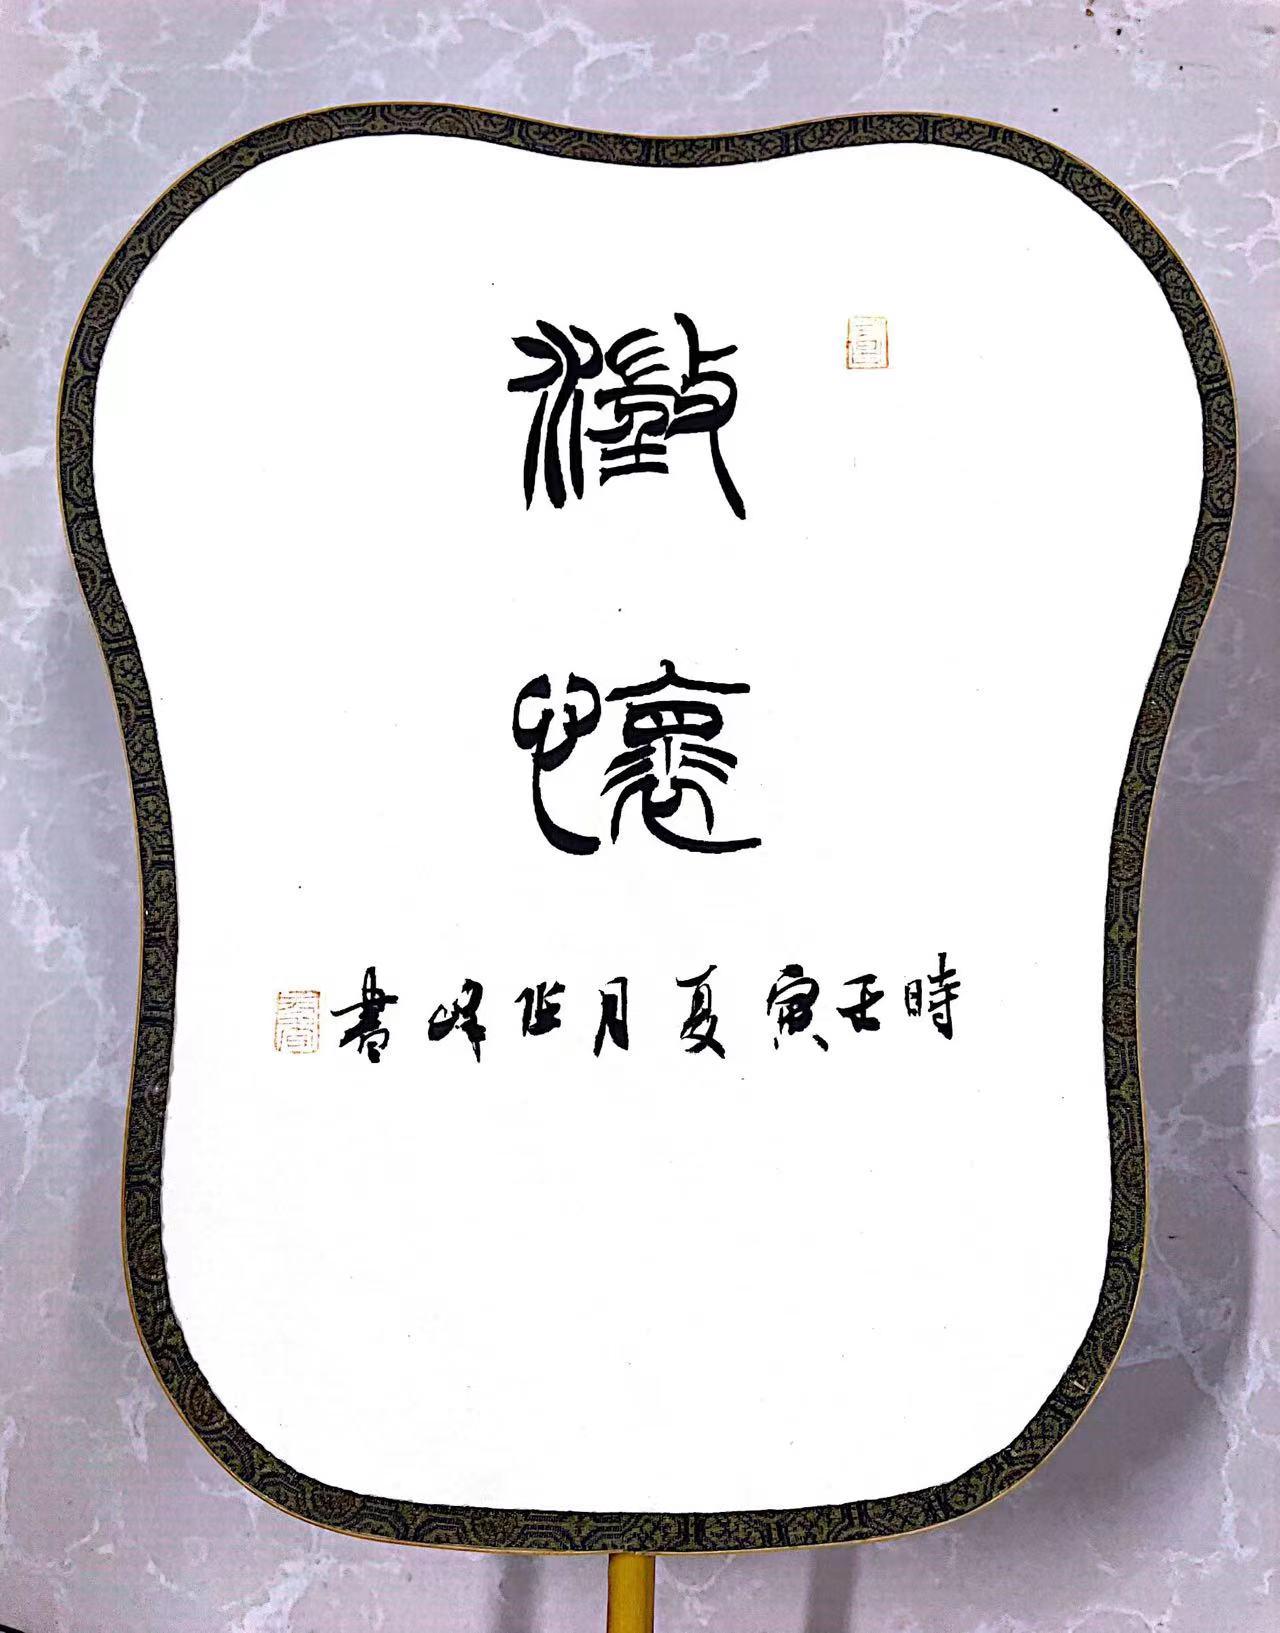 澂
懷
時壬寅夏月峰書